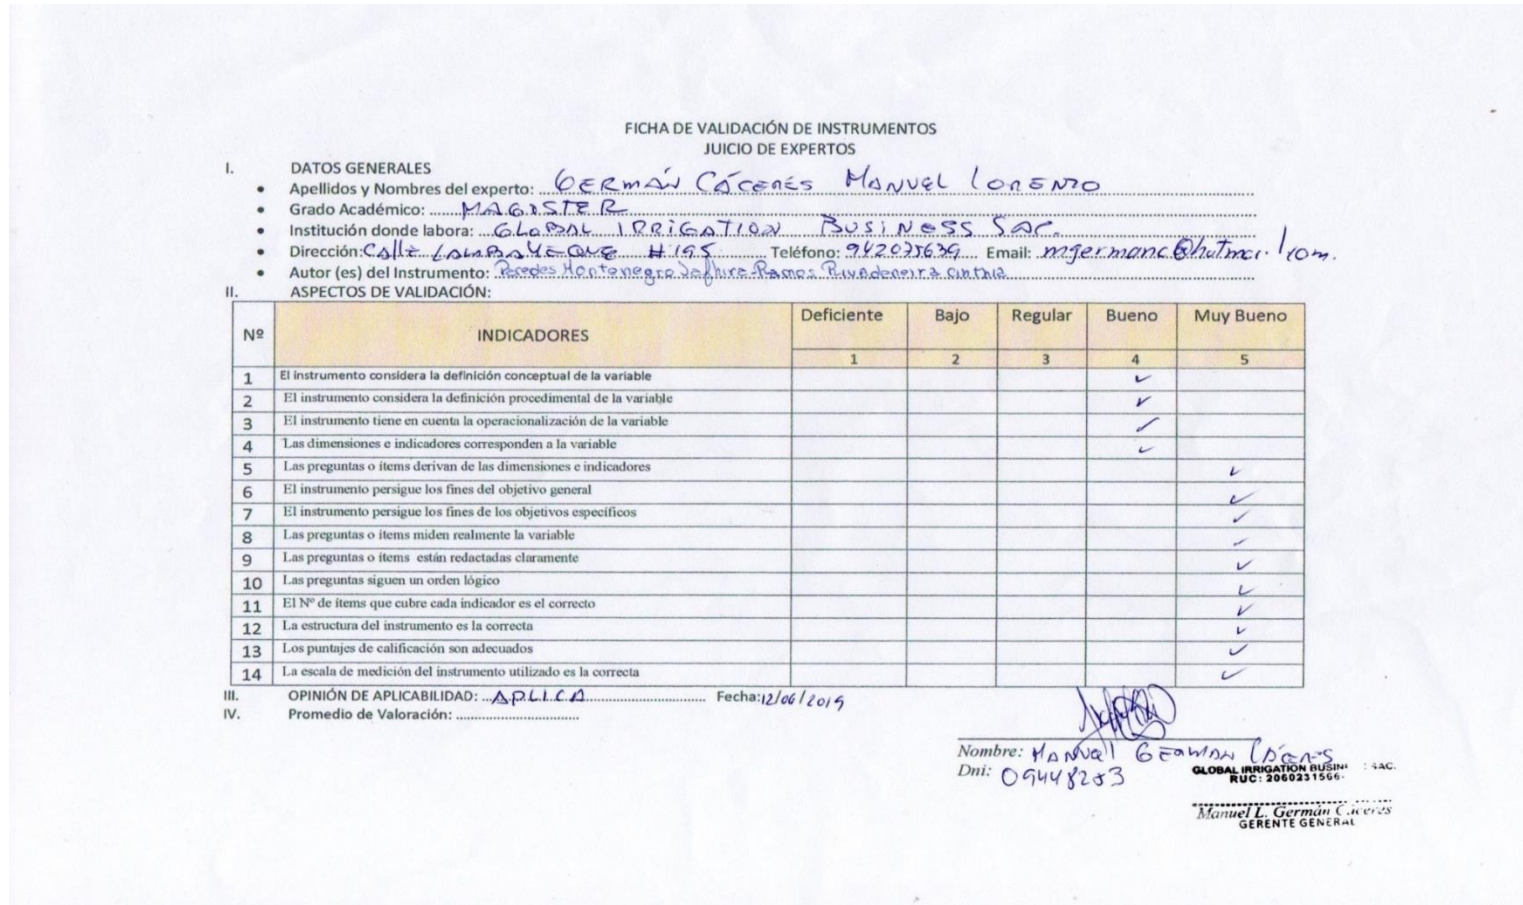 FICHA DE VALIDACIÓN DE INSTRUMENTOS
JUICIO DE EXPERTOS
I. DATOS GENERALES
• Apellidos y Nombres del experto: GERMÁN CÁCERES MANUEL LORENZO
• Grado Académico: MAGISTER
• Institución donde labora: GLOBAL IRRIGATION BUSINESS SAC.
• Dirección: Calle LAMBAYEQUE #195 Teléfono: 942035639 Email: mgermanc@hotmail.com.
• Autor (es) del Instrumento: Paredes Montenegro Ramos Rivadeneira Cinthia
II. ASPECTOS DE VALIDACIÓN:
Nº INDICADORES Deficiente Bajo Regular Bueno Muy Bueno
1 2 3 4 5
1 El instrumento considera la definición conceptual de la variable ✓
2 El instrumento considera la definición procedimental de la variable ✓
3 El instrumento tiene en cuenta la operacionalización de la variable ✓
4 Las dimensiones e indicadores corresponden a la variable ✓
5 Las preguntas o ítems derivan de las dimensiones e indicadores ✓
6 El instrumento persigue los fines del objetivo general ✓
7 El instrumento persigue los fines de los objetivos específicos ✓
8 Las preguntas o ítems miden realmente la variable ✓
9 Las preguntas o ítems están redactadas claramente ✓
10 Las preguntas siguen un orden lógico ✓
11 El Nº de ítems que cubre cada indicador es el correcto ✓
12 La estructura del instrumento es la correcta ✓
13 Los puntajes de calificación son adecuados ✓
14 La escala de medición del instrumento utilizado es la correcta ✓
III. OPINIÓN DE APLICABILIDAD: APLICA Fecha: 12/06/2019
IV. Promedio de Valoración:
Nombre: MANUEL GERMAN CÁCERES
Dni: 09448253
GLOBAL IRRIGATION BUSIN SAC.
RUC: 2060231566
Manuel L. Germán Cáceres
GERENTE GENERAL